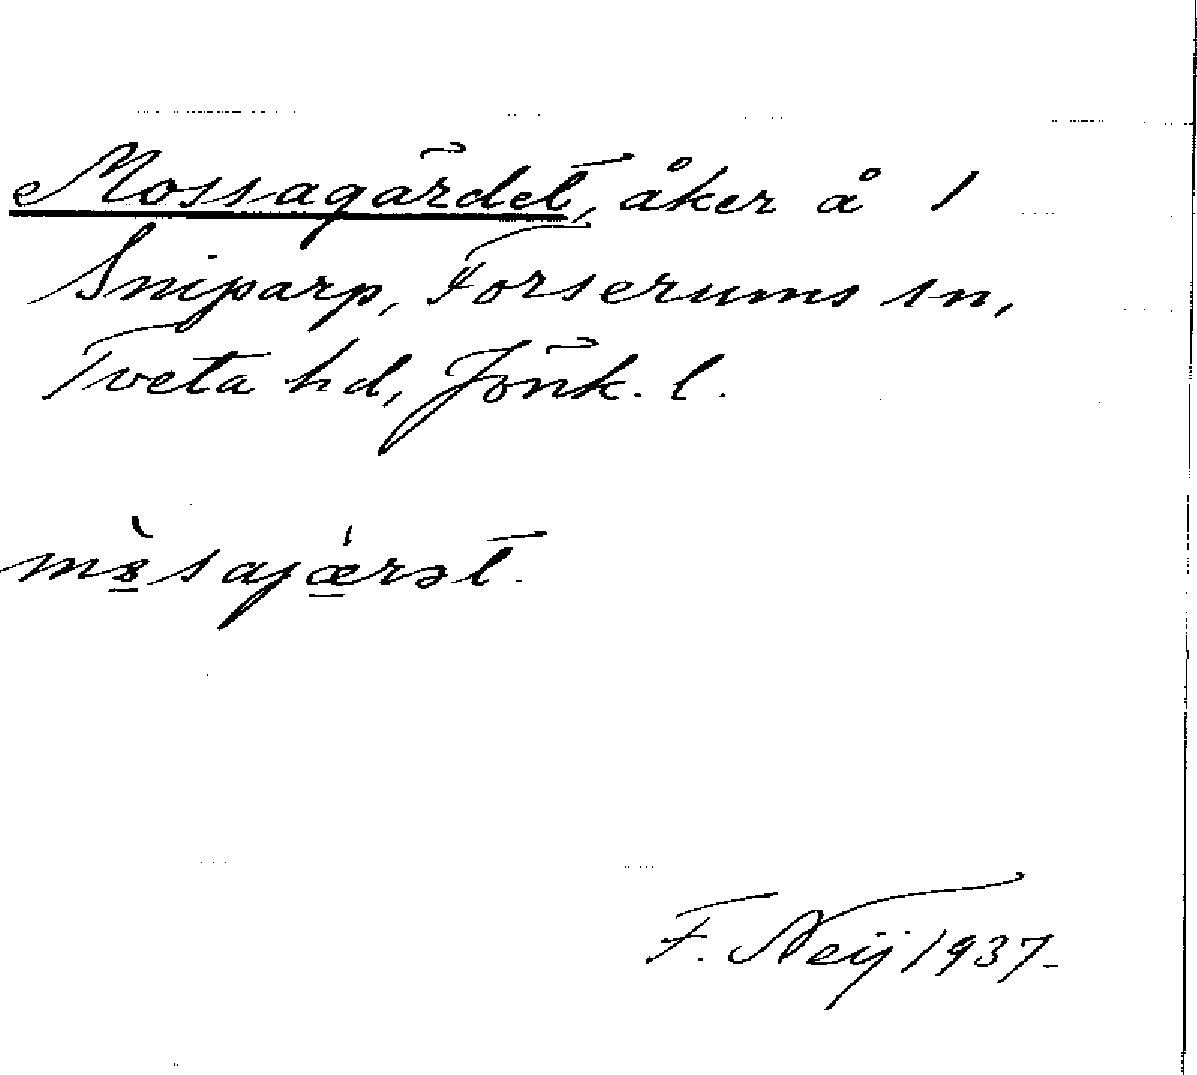 Mossagärdet, åker å 1
Sniparp, Forserums sn,
Tveta hd, Jönk. l.
F. Neij 1937.